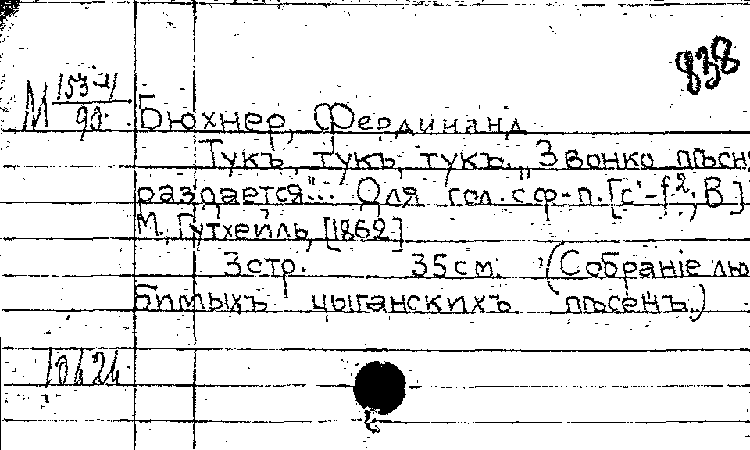 838
М 153-11/90. Бюхнер, Фердинанд
Тукъ, тукъ, тукъ. „Звонко пѣсня
раздается"... Для гол. с ф-п. [c¹-f², B]
М., Гутхейль, [1862]
3 стр. 35 см. (Собраніе лю-
бимыхъ цыганскихъ пѣсенъ.)